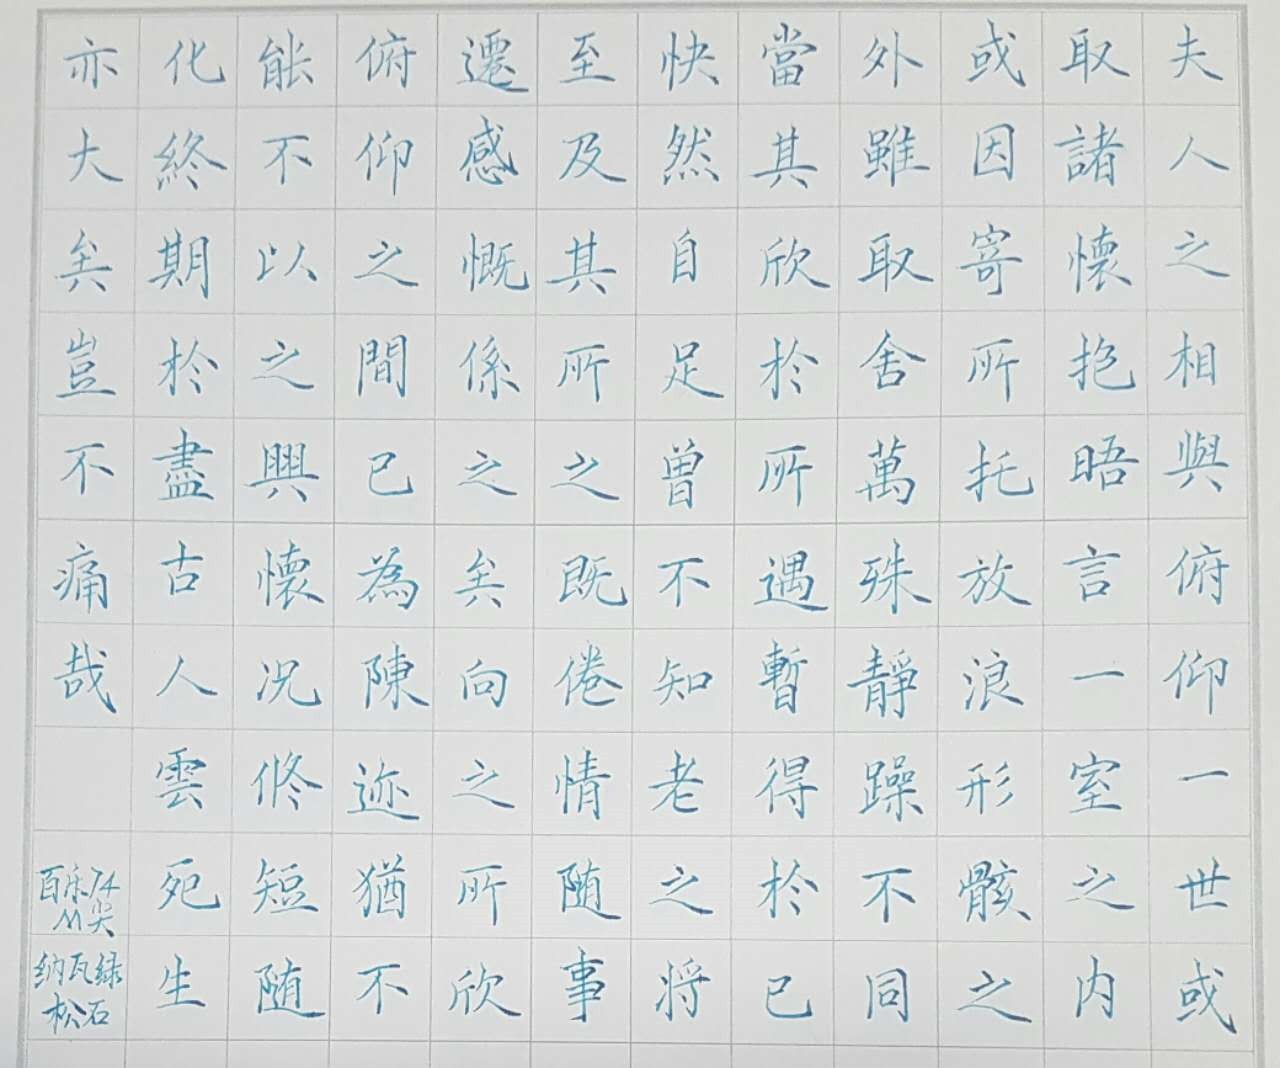 夫人之相與俯仰一世或
取諸懷抱晤言一室之内
或因寄所托放浪形骸之
外雖取舍萬殊靜躁不同
當其欣於所遇暫得於己
快然自足曾不知老之将
至及其所之既倦情随事
遷感慨係之矣向之所欣
俯仰之間已為陳迹猶不
能不以之興懷况脩短随
化終期於盡古人雲死生
亦大矣豈不痛哉
百乐74
M尖
纳瓦绿
松石